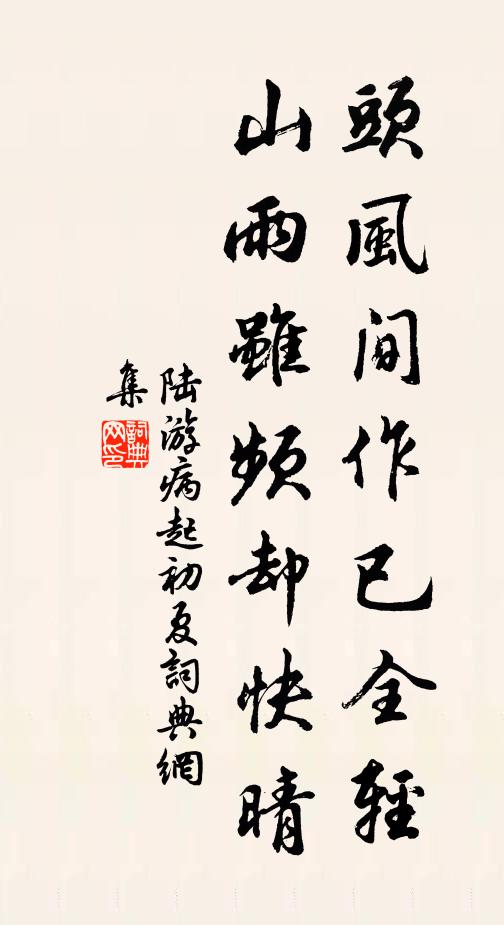 頭風間作已全輕
山雨雖頻却快晴
陸游病起初夏詞典網
集
詞典
网印